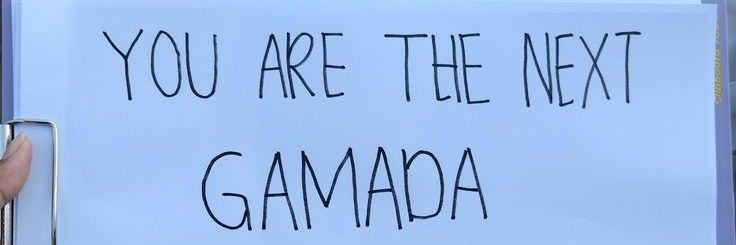 YOU ARE THE NEXT
GAMADA